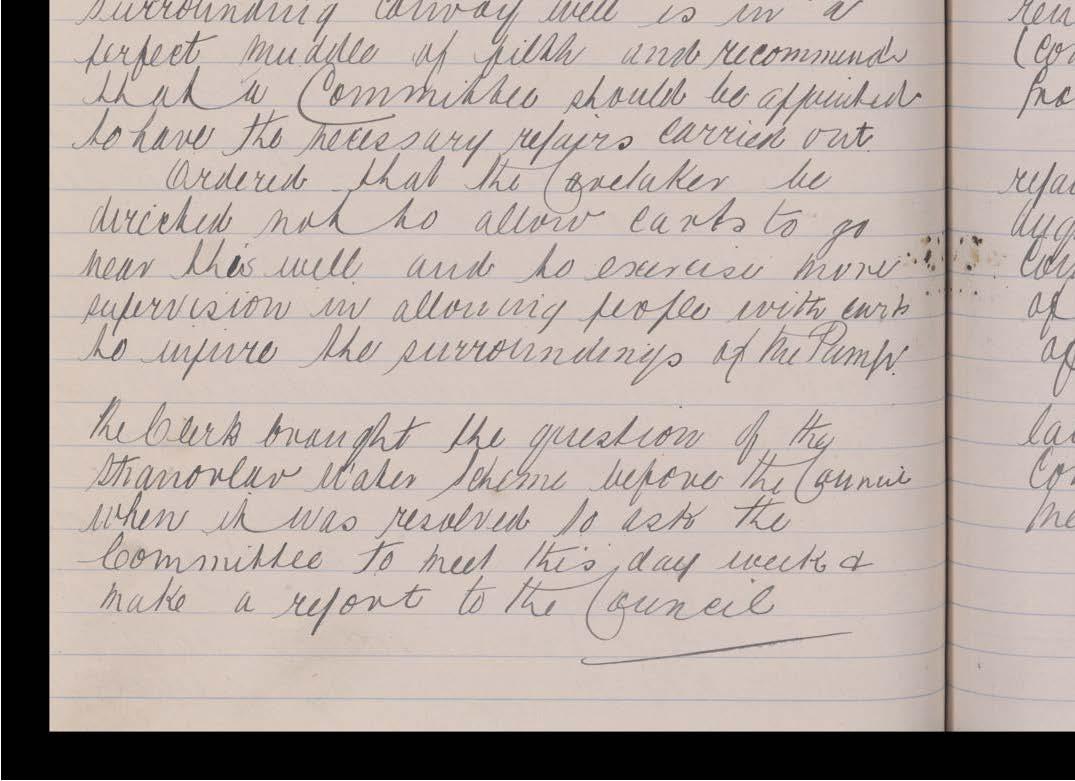 surrounding Convoy well is in a
perfect muddle of filth and recommends
that a Committee should be appointed
to have the necessary repairs carried out.
Ordered that the Caretaker be
directed not to allow carts to go
near this well and to exercise more
supervision in allowing people with carts
to injure the surroundings of the Pump.
The Clerk brought the question of the
Stranorlar Water Scheme before the Council
when it was resolved to ask the
Committee to meet this day week &
make a report to the Council
of